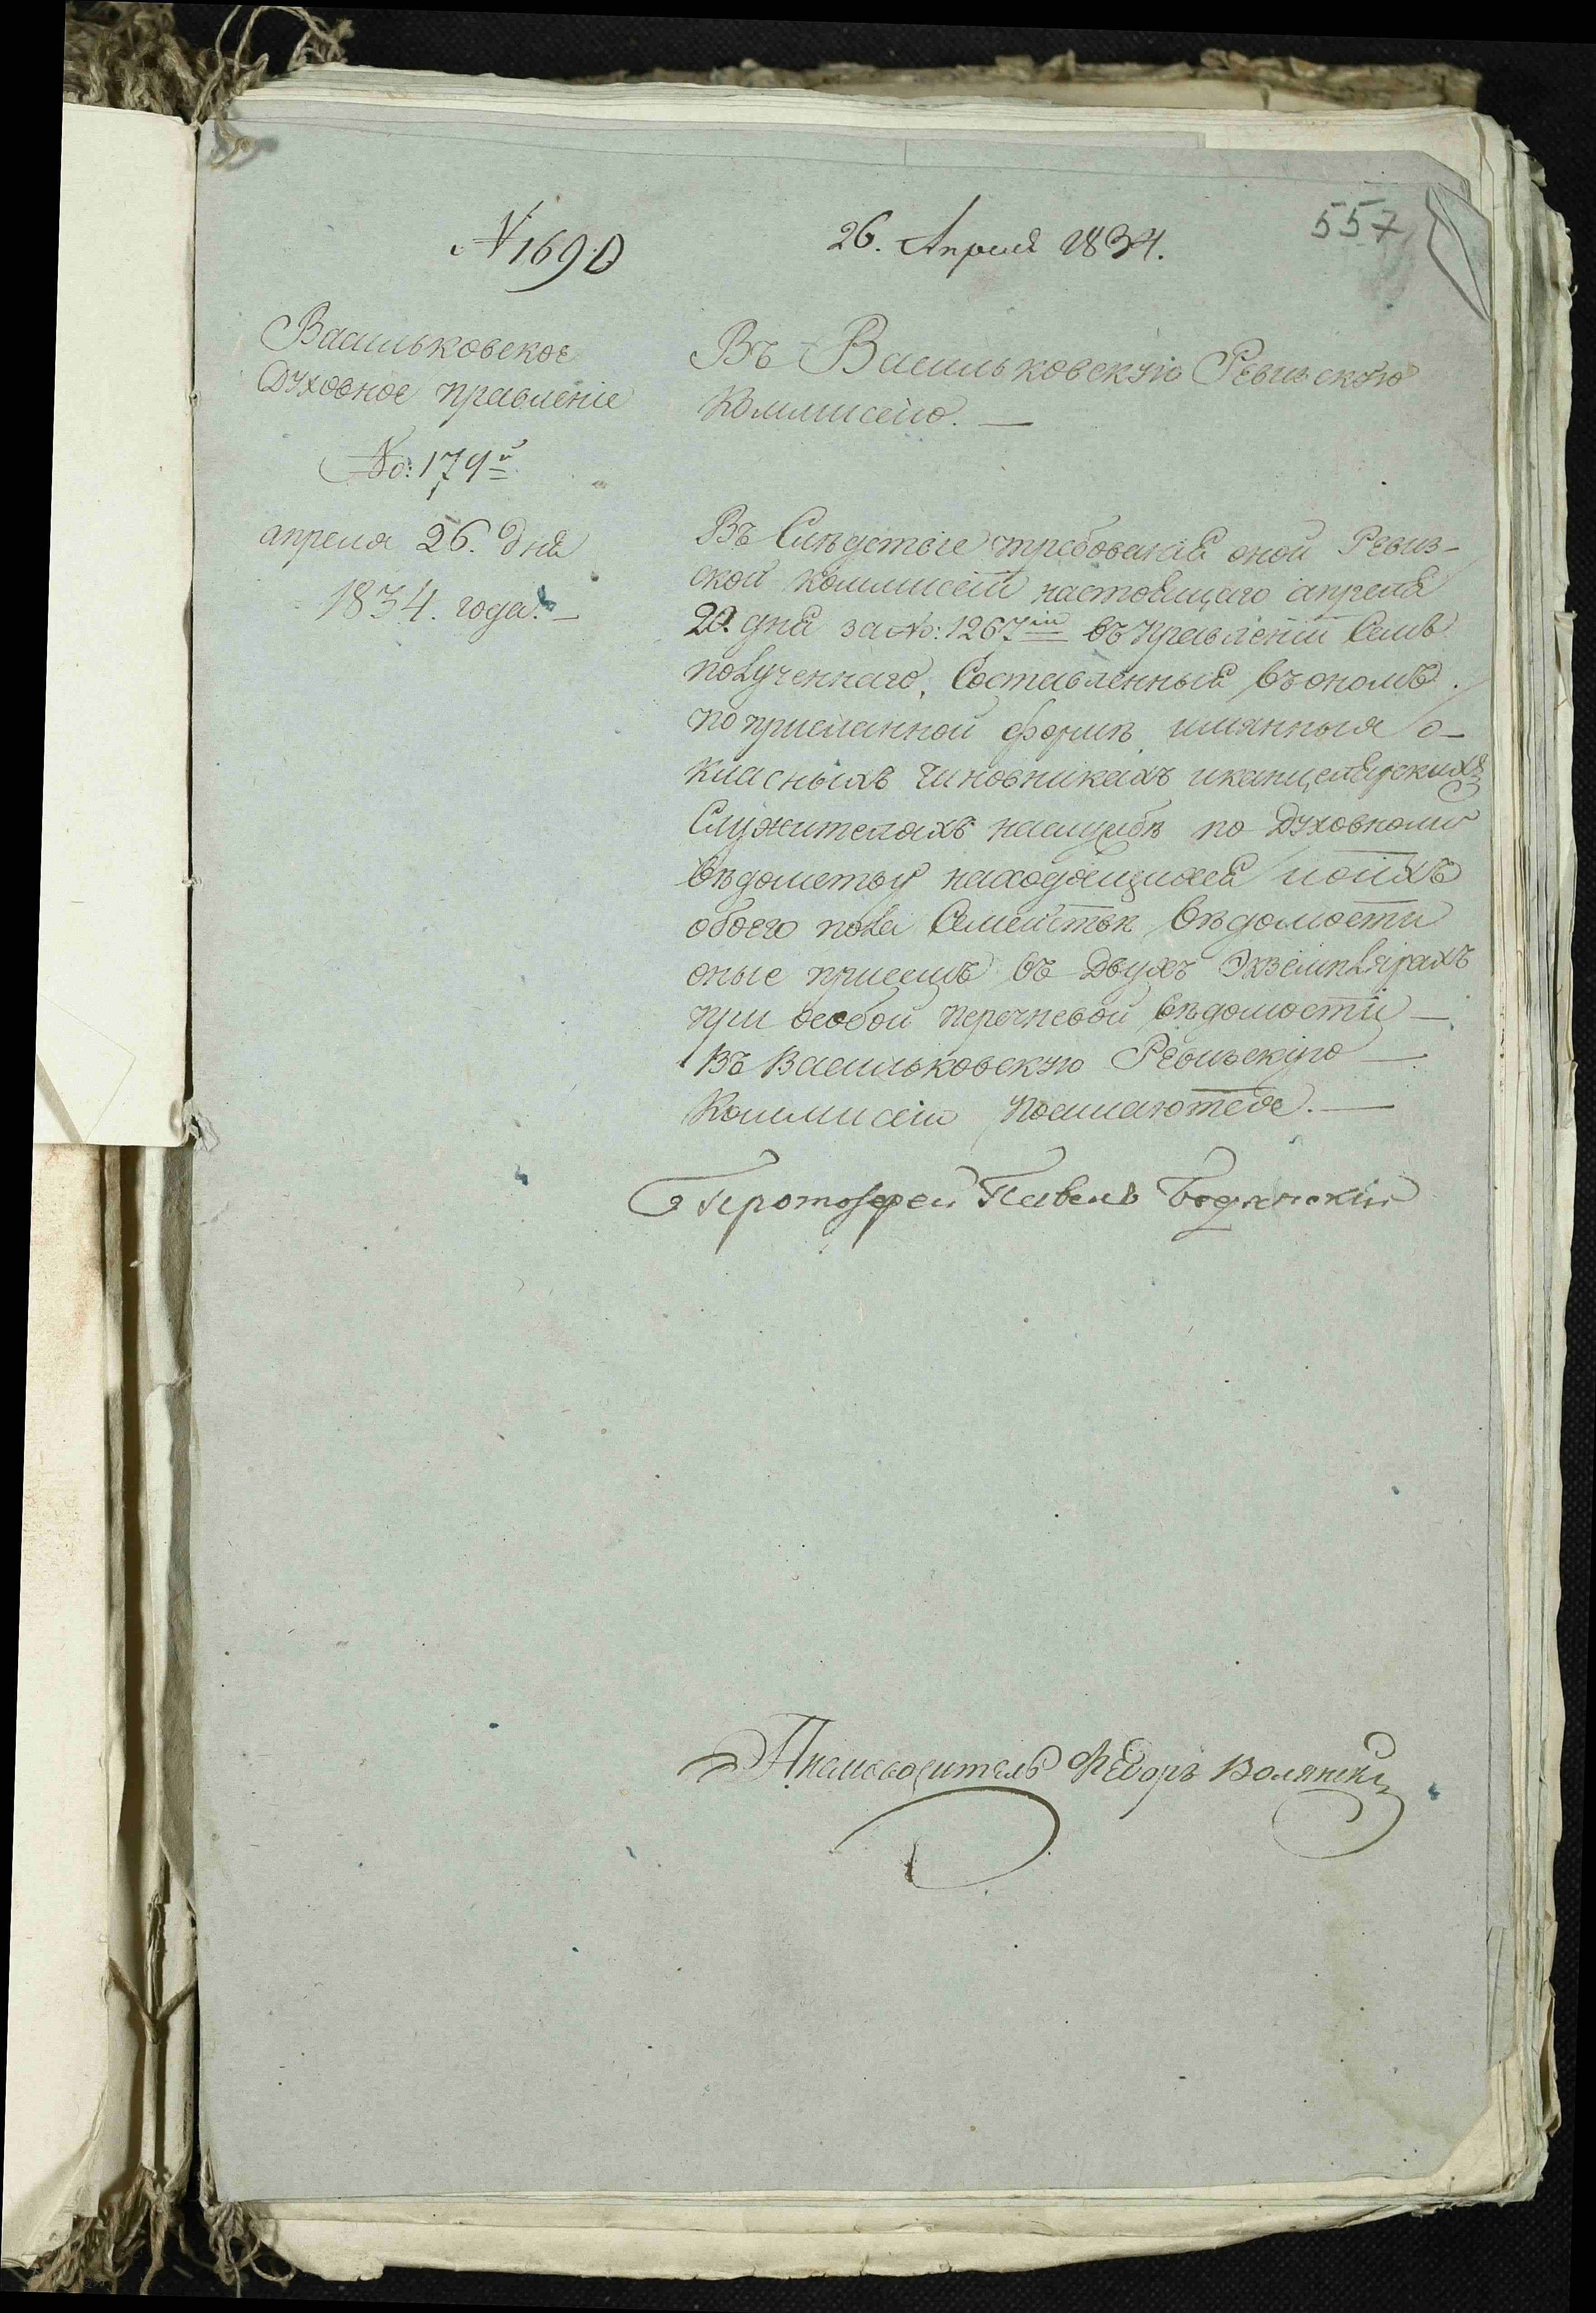 557
№ 1690
26. Апреля 1834.
Васильковское
Духовное правленіе
No: 179й
апреля 26. дня
1834. года. —
Въ Васильковскую Ревизскую
Коммисію. —
Въ Следствіе требованія оной Ревиз-
ской коммисіи настоящаго апреля
20. дня за No: 1267мъ въ Правленіи Семъ
полученнаго, Составленныя въ ономъ
по присланной формѣ имянныя о-
класныхъ чиновникахъ и канцелярскихъ
Служителяхъ на службѣ по Духовному
вѣдомству находящихся и о ихъ
обоего пола Семействѣ вѣдомости
оные при семъ въ двухъ Экземплярахъ
при особой перечневой вѣдомости —
Въ Васильковскую Ревизскую —
Коммисію посылаются. —
Протоіерей Павелъ Бодянскій
Писмоводитель Федоръ Волянскі